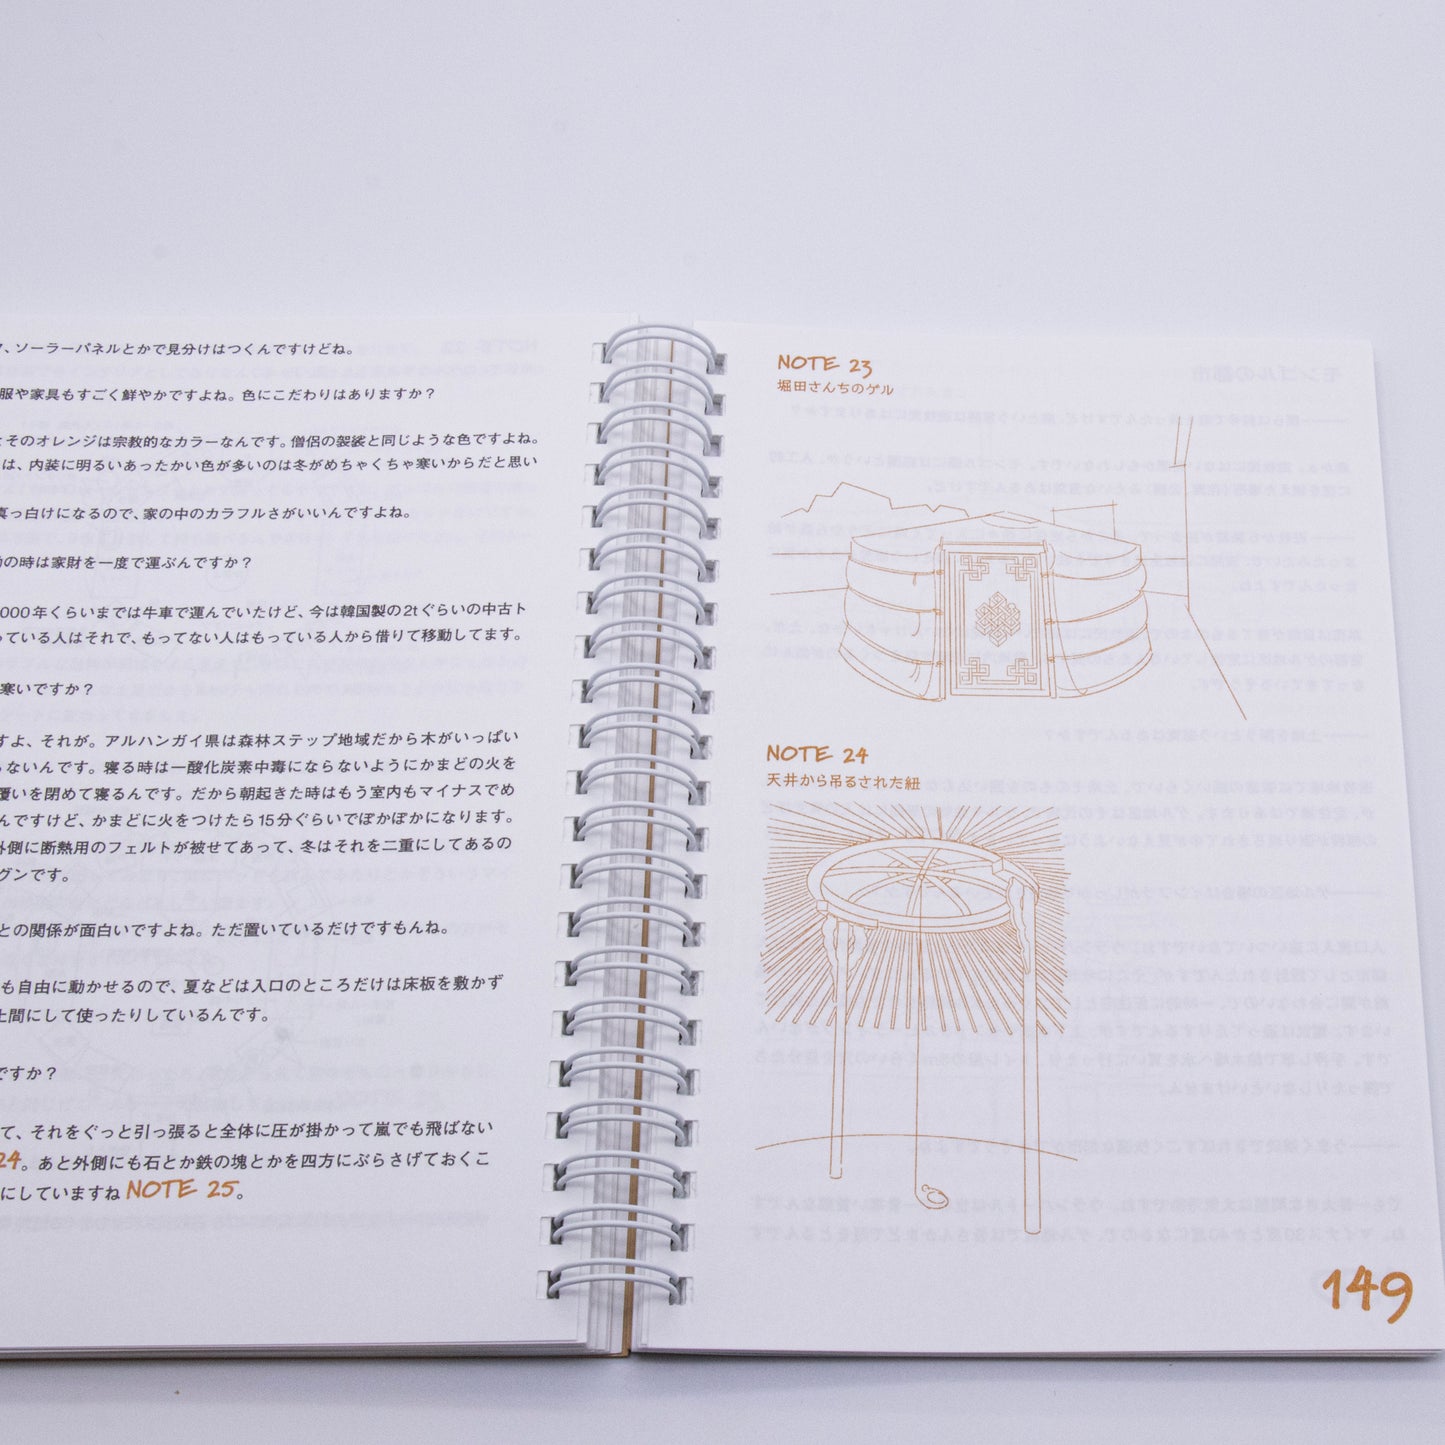 、ソーラーパネルとかで見分けはつくんですけどね。
服や家具もすごく鮮やかですよね。色にこだわりはありますか?
とそのオレンジは宗教的なカラーなんです。僧侶の袈裟と同じような色ですよね。
は、内装に明るいあったかい色が多いのは冬がめちゃくちゃ寒いからだと思い
真っ白けになるので、家の中のカラフルさがいいんですよね。
の時は家財を一度で運ぶんですか?
000年くらいまでは牛車で運んでいたけど、今は韓国製の2tぐらいの中古ト
っている人はそれで、もってない人はもっている人から借りて移動してます。
寒いですか?
すよ、それが。アルハンガイ県は森林ステップ地域だから木がいっぱい
らないんです。寝る時は一酸化炭素中毒にならないようにかまどの火を
覆いを閉めて寝るんです。だから朝起きた時はもう室内もマイナスでめ
んですけど、かまどに火をつけたら15分ぐらいでぽかぽかになります。
外側に断熱用のフェルトが被せてあって、冬はそれを二重にしてあるの
グンです。
との関係が面白いですよね。ただ置いているだけですもんね。
も自由に動かせるので、夏などは入口のところだけは床板を敷かず
土間にして使ったりしているんです。
ですか?
て、それをぐっと引っ張ると全体に圧が掛かって嵐でも飛ばない
24。あと外側にも石とか鉄の塊とかを四方にぶらさげておくこ
にしていますね NOTE 25。
NOTE 23
堀田さんちのゲル
NOTE 24
天井から吊るされた紐
149